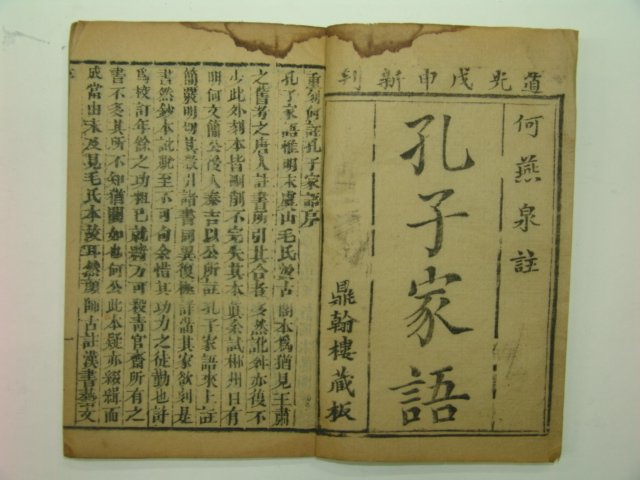 道光戊申新
何燕泉註
孔子家語
鼎翰樓藏板
重刻何註孔子家語序
孔子家語惟明末虞山毛氏汲古閣本爲猶見王肅
之舊考之唐人註書所引其合者多然訛舛亦復不
少此外刻本皆刪削不完失其本眞余試郴州日有
明何文簡公後人秦吉以公所註孔子家語來上註
簡嚴明切其徵引諸書同異復極詳其家欲刻是
書然鈔本訛脫至不可句余惜其功力之徒勤也
爲校訂年餘之功粗已就緒方可殺靑官齋所有之
書不多其所不知猶闕如也何公此本疑亦綴輯而
成當由未及見毛氏本故耳然顏師古註漢書藝文